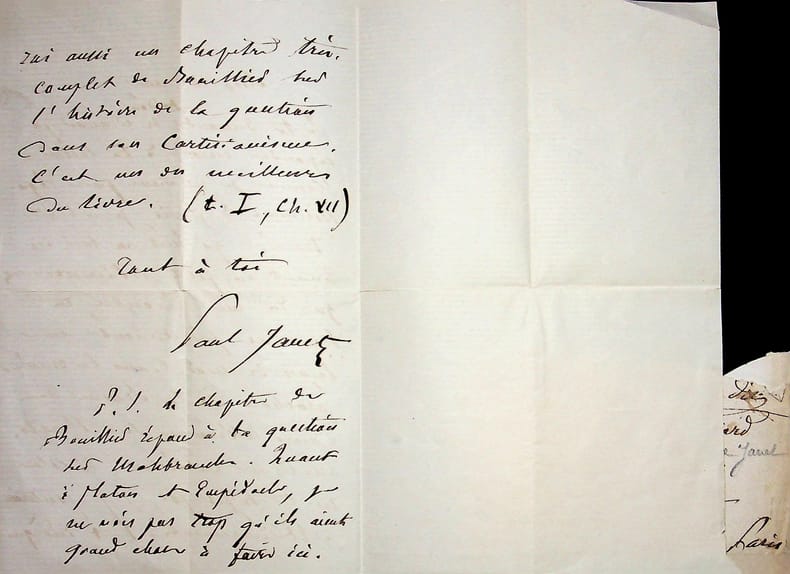 J'ai aussi un chapitre très
complet de Bouillier sur
l'histoire de la question
dans son Cartésianisme.
C'est un des meilleurs
du livre. (t. I, ch. VII)
Tout à toi
Paul Janet
P.S. Le chapitre de
Bouillier répond à ta question
sur Malebranche. Quant
à Platon et Empédocle, je
ne vois pas trop qu'ils aient
grand chose à faire ici.
Janet
Paris